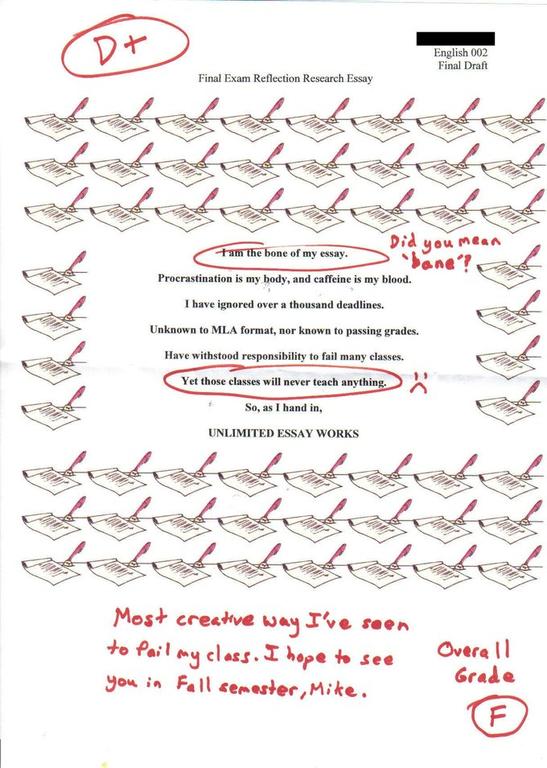 D+
English 002
Final Draft
Final Exam Reflection Research Essay
I am the bone of my essay.
Did you mean
"bane"?
Procrastination is my body, and caffeine is my blood.
I have ignored over a thousand deadlines.
Unknown to MLA format, nor known to passing grades.
Have withstood responsibility to fail many classes.
Yet those classes will never teach anything.
So, as I hand in,
UNLIMITED ESSAY WORKS
Most creative way I've seen
to fail my class. I hope to see
you in Fall semester, Mike.
Overall
Grade
F